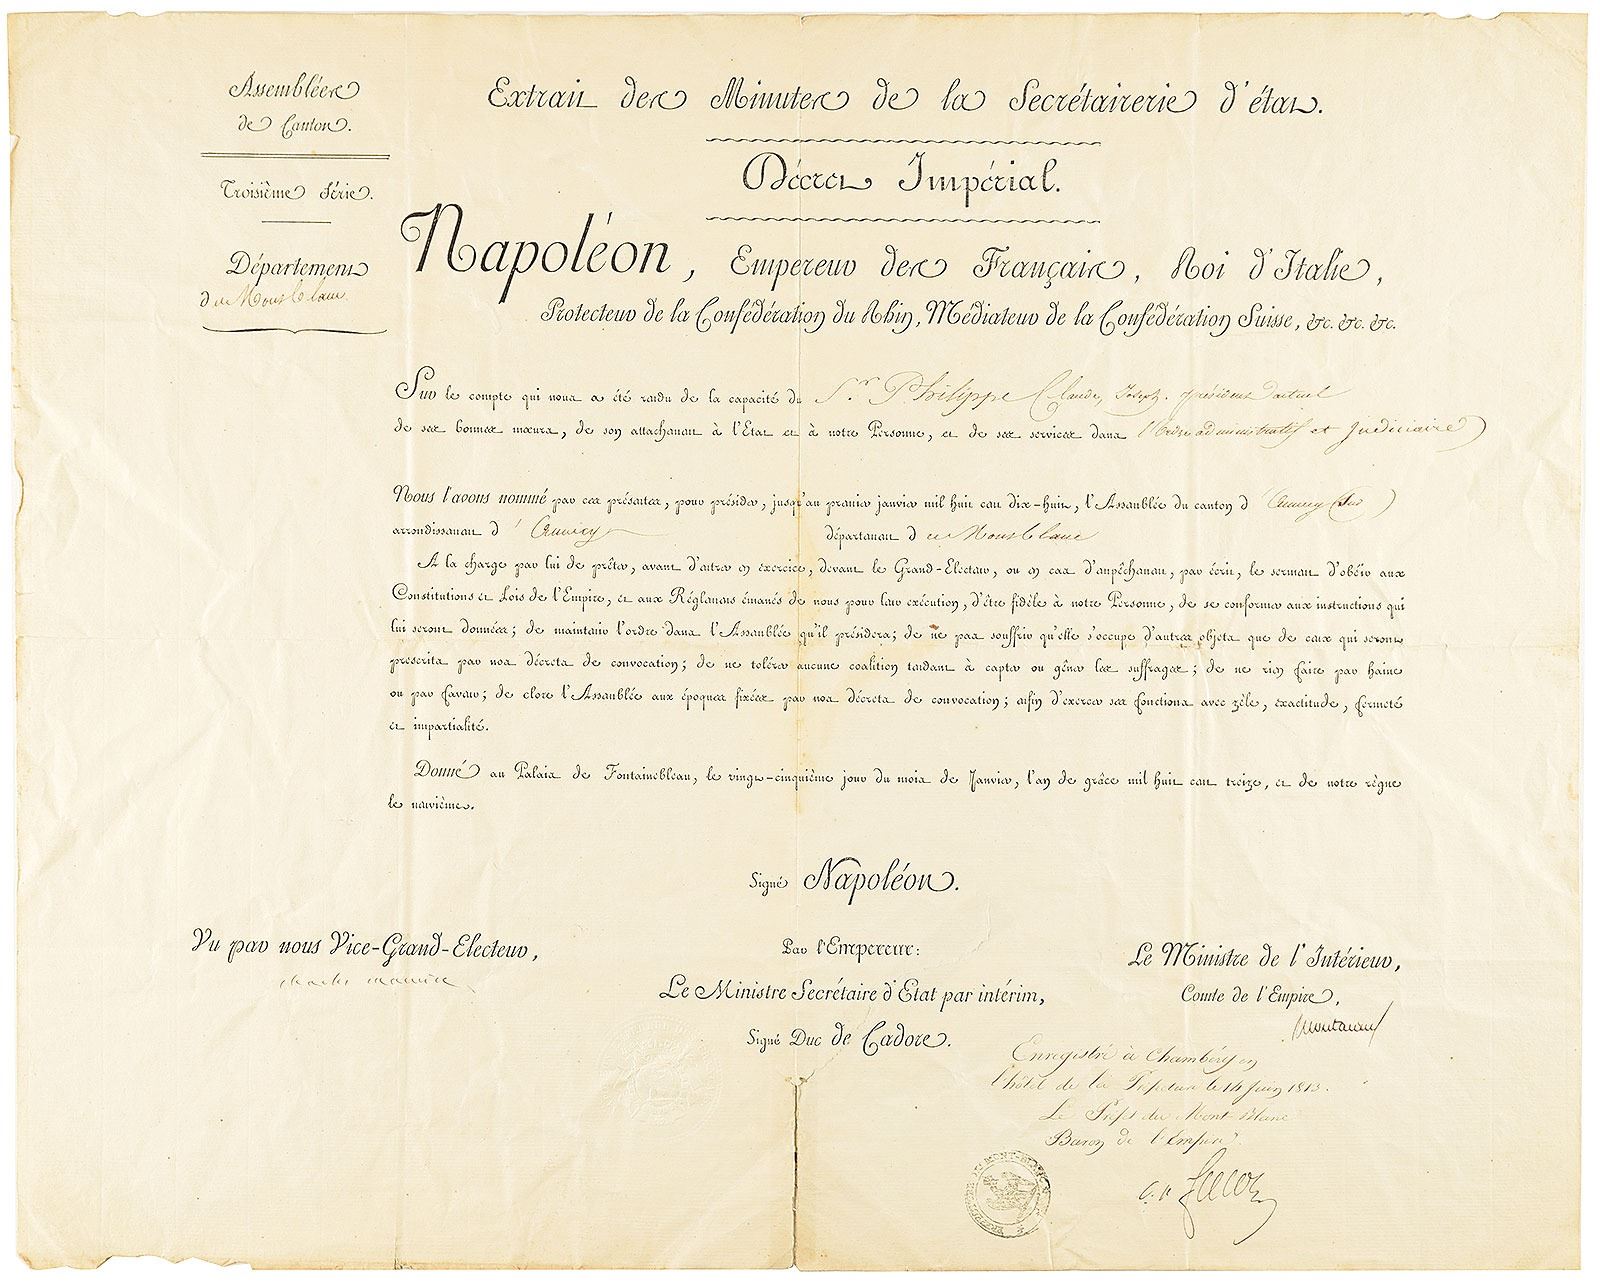 Assemblées
de Canton.
Troisième Série.
Département
du Mont blanc
Extrait des Minutes de la Secrétairerie d'état.
Décret Impérial.
Napoléon, Empereur des Français, Roi d'Italie,
Protecteur de la Confédération du Rhin, Médiateur de la Confédération Suisse, &c. &c. &c.
Sur le compte qui nous a été rendu de la capacité du Sr. Philippe Claude, Joseph. président actuel
de ses bonnes mœurs, de son attachement à l'Etat et à notre Personne, et de ses services dans l'Ordre administratif et judiciaire
Nous l'avons nommé par ces présentes, pour présider, jusqu'au premier janvier mil huit cent dix-huit, l'Assemblée du canton d'Annecy (Sud)
arrondissement d'Annecy département du Mont blanc
A la charge par lui de prêter, avant d'entrer en exercice, devant le Grand-Electeur, ou en cas d'empêchement, par écrit, le serment d'obéir aux
Constitutions et Lois de l'Empire, et aux Réglemens émanés de nous pour leur exécution, d'être fidèle à notre Personne, de se conformer aux instructions qui
lui seront données; de maintenir l'ordre dans l'Assemblée qu'il présidera; de ne pas souffrir qu'elle s'occupe d'autres objets que de ceux qui seront
prescrits par nos décrets de convocation; de ne tolérer aucune coalition tendant à capter ou gêner les suffrages; de ne rien faire par haine
ou par faveur; de clore l'Assemblée aux époques fixées par nos décrets de convocation; enfin d'exercer ses fonctions avec zèle, exactitude, fermeté
et impartialité.
Donné au Palais de Fontainebleau, le vingt-cinquième jour du mois de Janvier, l'an de grâce mil huit cent treize, et de notre règne
le neuvième.
Signé Napoléon.
Vu par nous Vice-Grand-Electeur,
charles maurice
Par l'Empereur:
Le Ministre Secrétaire d'Etat par intérim,
Signé Duc de Cadore.
Le Ministre de l'Intérieur,
Comte de l'Empire,
Montalivet
Enregistré à Chambéry en
l'hôtel de la Préfecture le 14 juin 1813.
Le Préfet du Mont Blanc
Baron de l'Empire.
DU MONT-BLANC